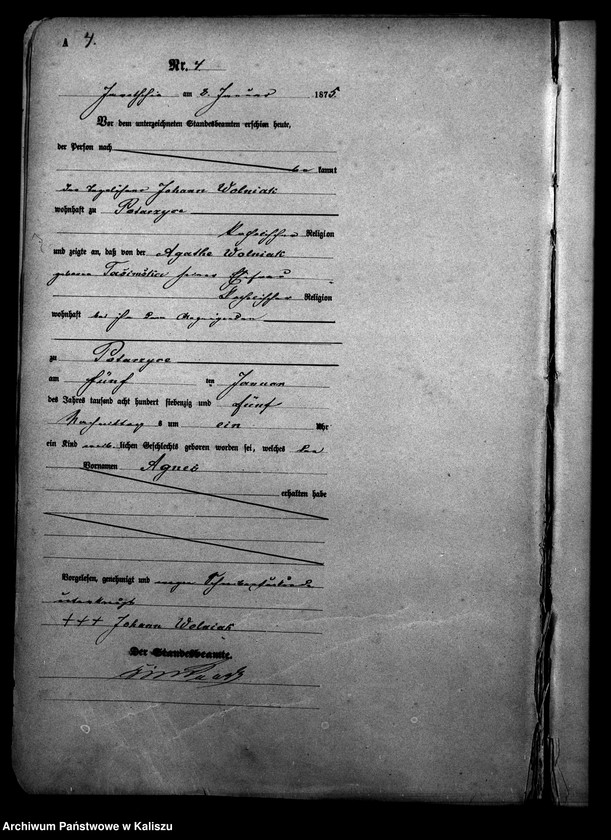 A 4.
Nr. 4
am 8. Januar 1875.
Vor dem unterzeichneten Standesbeamten erschien heute,
der Person nach
be kannt
Der Tagelöhner Johann Wolniak
wohnhaft zu Potarzyce
katholischer Religion
und zeigte an, daß von der Agathe Wolniak
geborene seiner Ehefrau
katholischer Religion
wohnhaft bei ihm dem Anzeigenden
zu Potarzyce
am fünf ten Januar
des Jahres tausend acht hundert siebenzig und fünf
Nachmittag s um ein Uhr
ein Kind weib lichen Geschlechts geboren worden sei, welches den
Vornamen Agnes
erhalten habe
Vorgelesen, genehmigt und wegen
unterkreuzt
+++ Johann Wolniak
Der Standesbeamte.
Archiwum Państwowe w Kaliszu